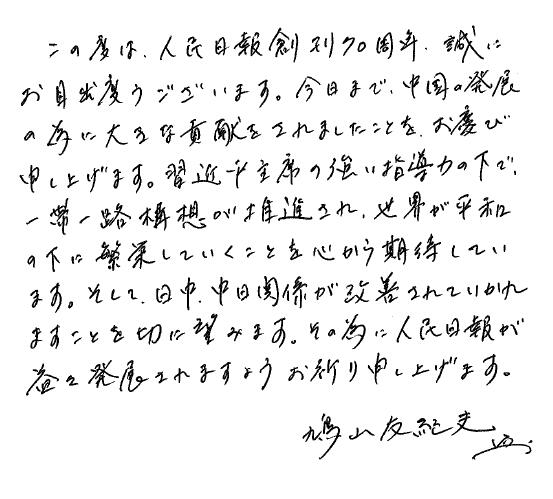 この度は、人民日報創刊70周年、誠に
お目出度うございます。今日まで、中国の発展
の為に大きな貢献をされましたことを、お慶び
申し上げます。習近平主席の強い指導力の下で、
一帯一路構想が推進され、世界が平和
の下に繁栄していくことを心から期待してい
ます。そして、日中、中日関係が改善されていかれ
ますことを切に望みます。その為に人民日報が
益々発展されますようお祈り申し上げます。
鳩山友紀夫